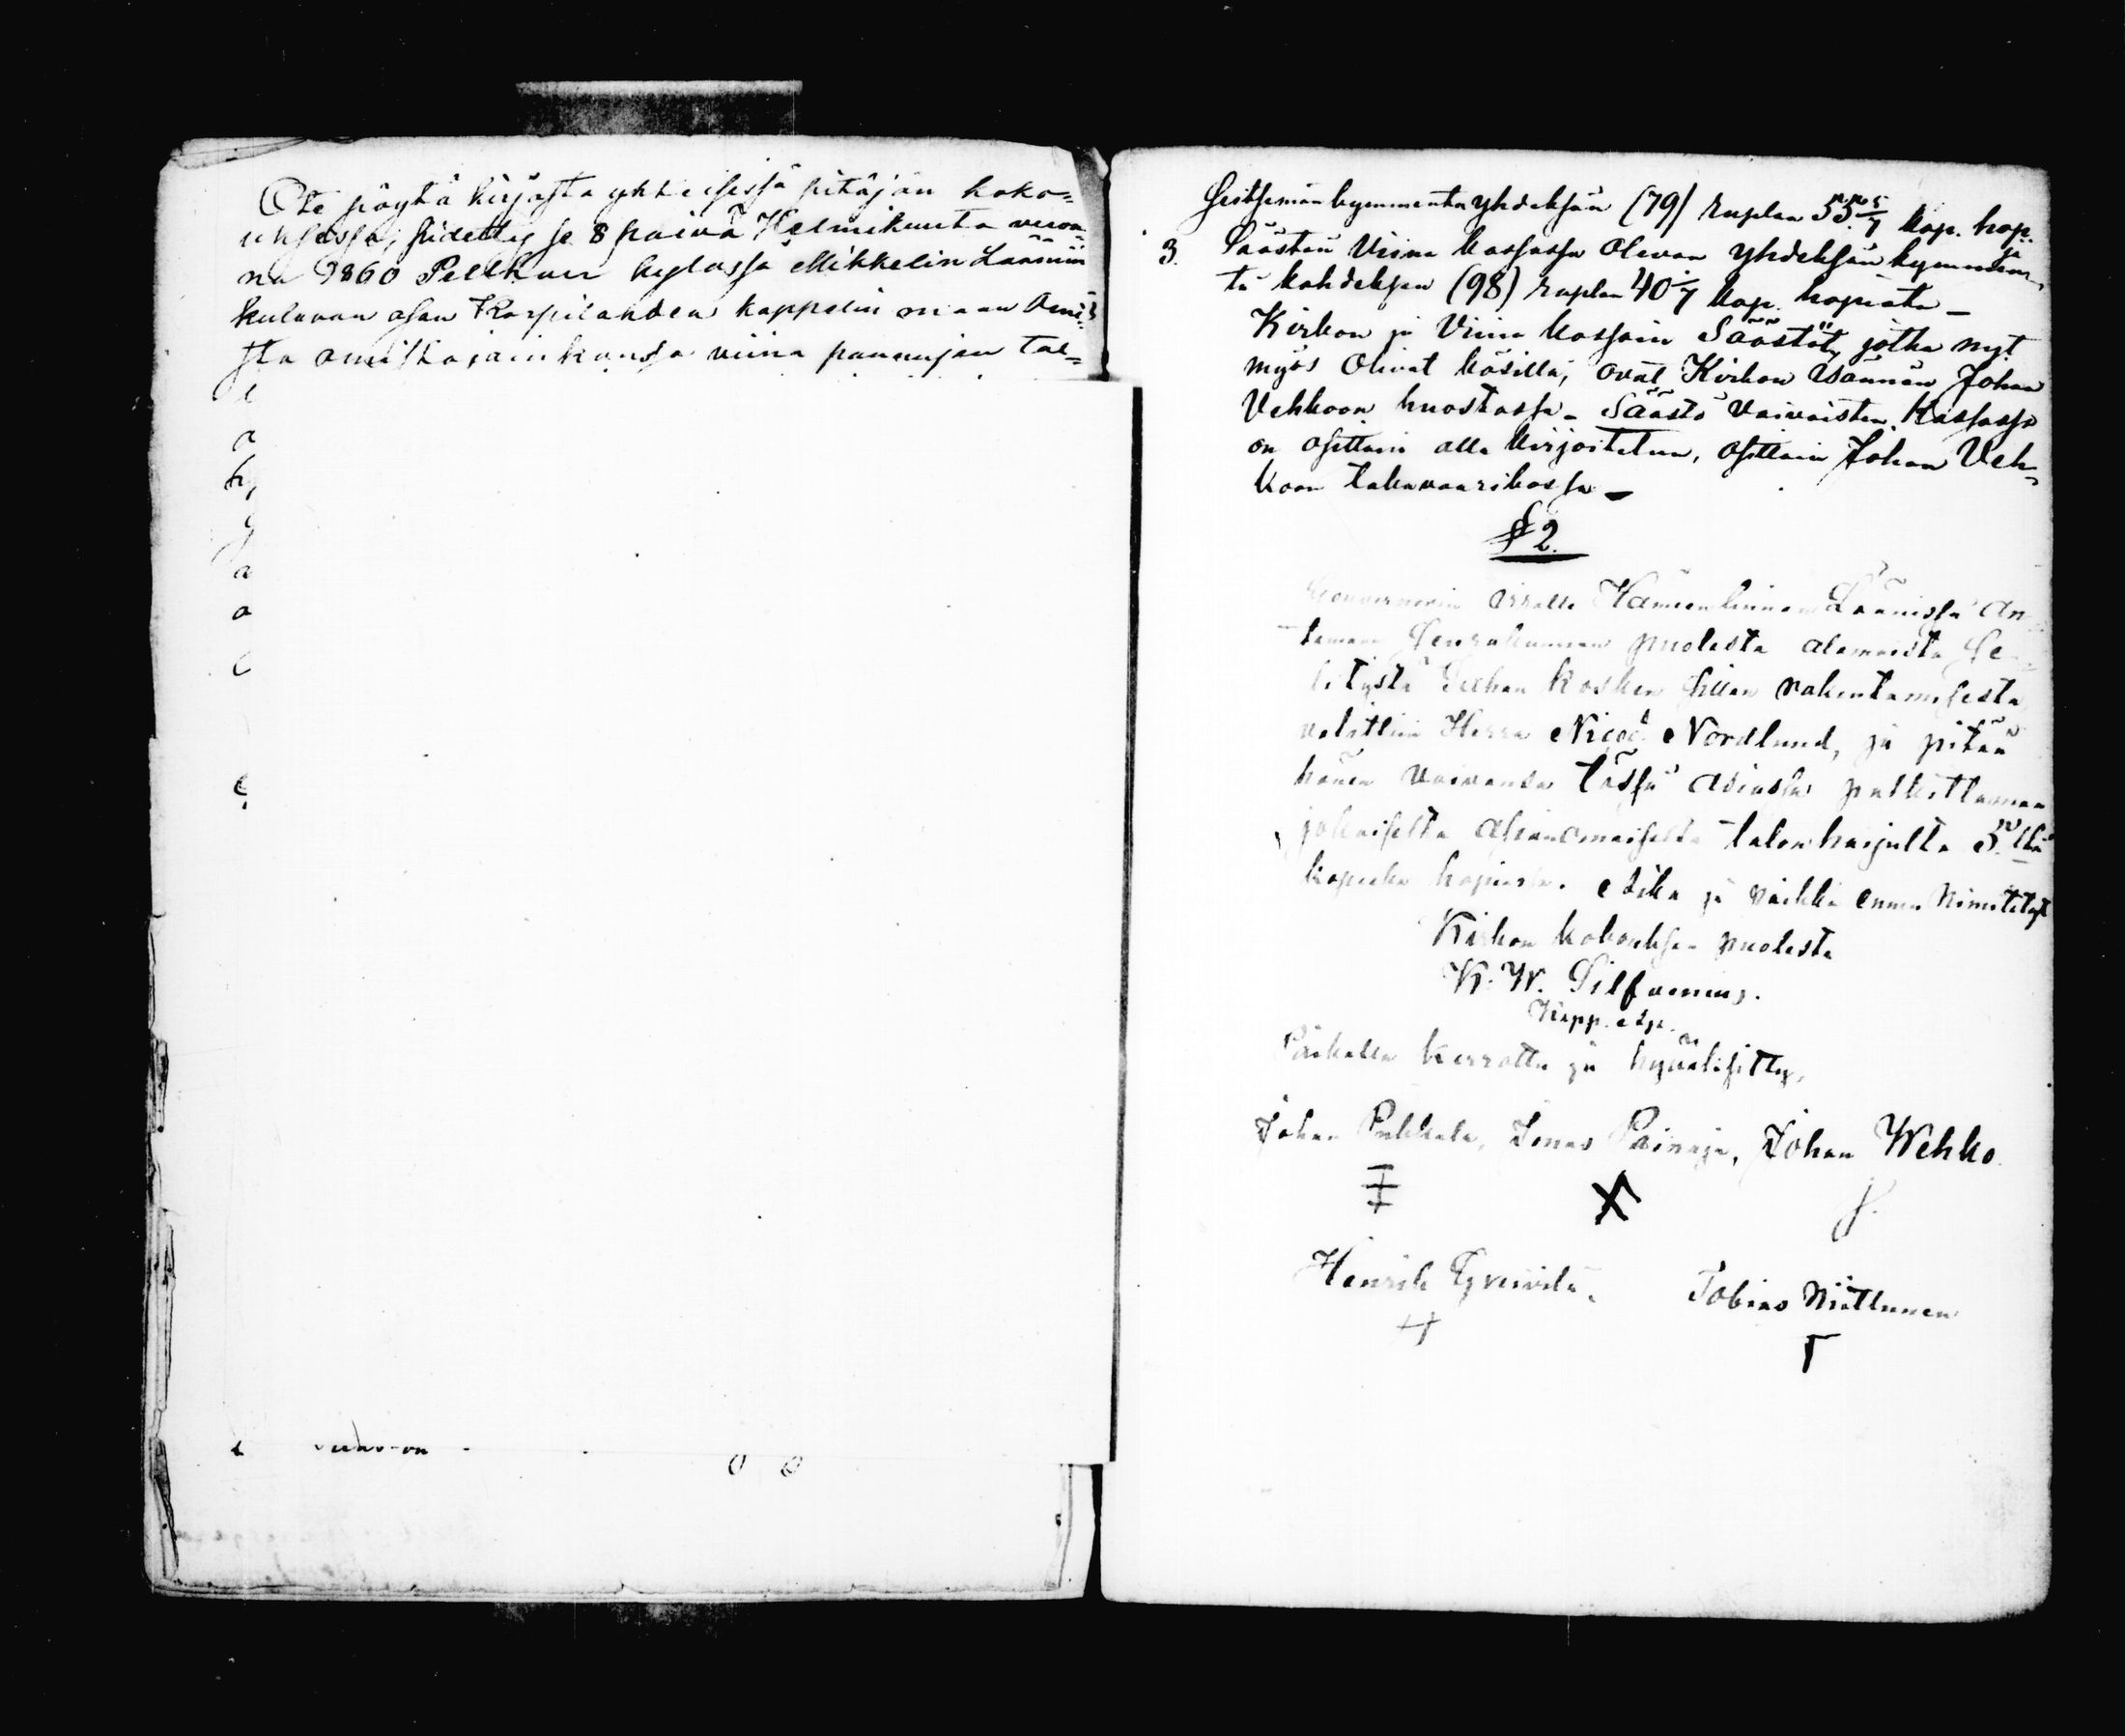 Ote pöytä kirjasta yhteisessä pitäjän koko=
uksessa, pidetty se 8 päivä Helmikuuta vuon=
na 1860 Pellkuin kylässä Mikkelin Lääniin
kuluvan osan Karpilahden kappelin maan Omi=
sta omistajain kanssa viina pannujan tal=
Seitsemänkymmentä yhdeksän (79) ruplan 55 5/7 kop. hop. ja
3. Säästön Viina kassassa Olevan yhdeksän kymmen=
tä kahdeksan (98) ruplan 40 1/7 kop. hopiata _
Kirkon ja Viina kassain Säästöt, jotka nyt
myös Olivat käsillä, ovat Kirkon isännän Johan
Vehkoon huostassa _ Säästö Vaivaisten Kassassa
on osittain alla kirjoitetun, osittain Johan Veh=
koon takavaarikossa _
§ 2.
Gouvernörin Hämeenlinnan Läänissä an=
taman Seurakunnan puolesta alamaista Se=
litystä koshen sillan rakentamisesta
valittiin Herra Nordlund, ja pitää
hänen vaivansa tässä asiassa palkittaman
jokaiselta asianomaiselta talonharjulta 5:llä
kopeka hopiassa. Aika ja paikka ennen Nimitetyt
Kirkon kokouksen puolesta
K. W. Silfvenius.
Kapp.
Paikalla kerrottu ja hyväksitty,
Johan Pukkala, Jonas Painaja, Johan Wehko
Henrik Tobias Niittunen